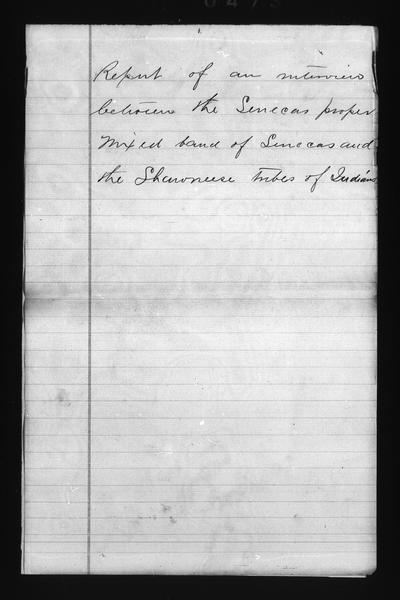 Report of an interview
between the Senecas proper
Mixed band of Senecas and
the Shawneese tribes of Indians